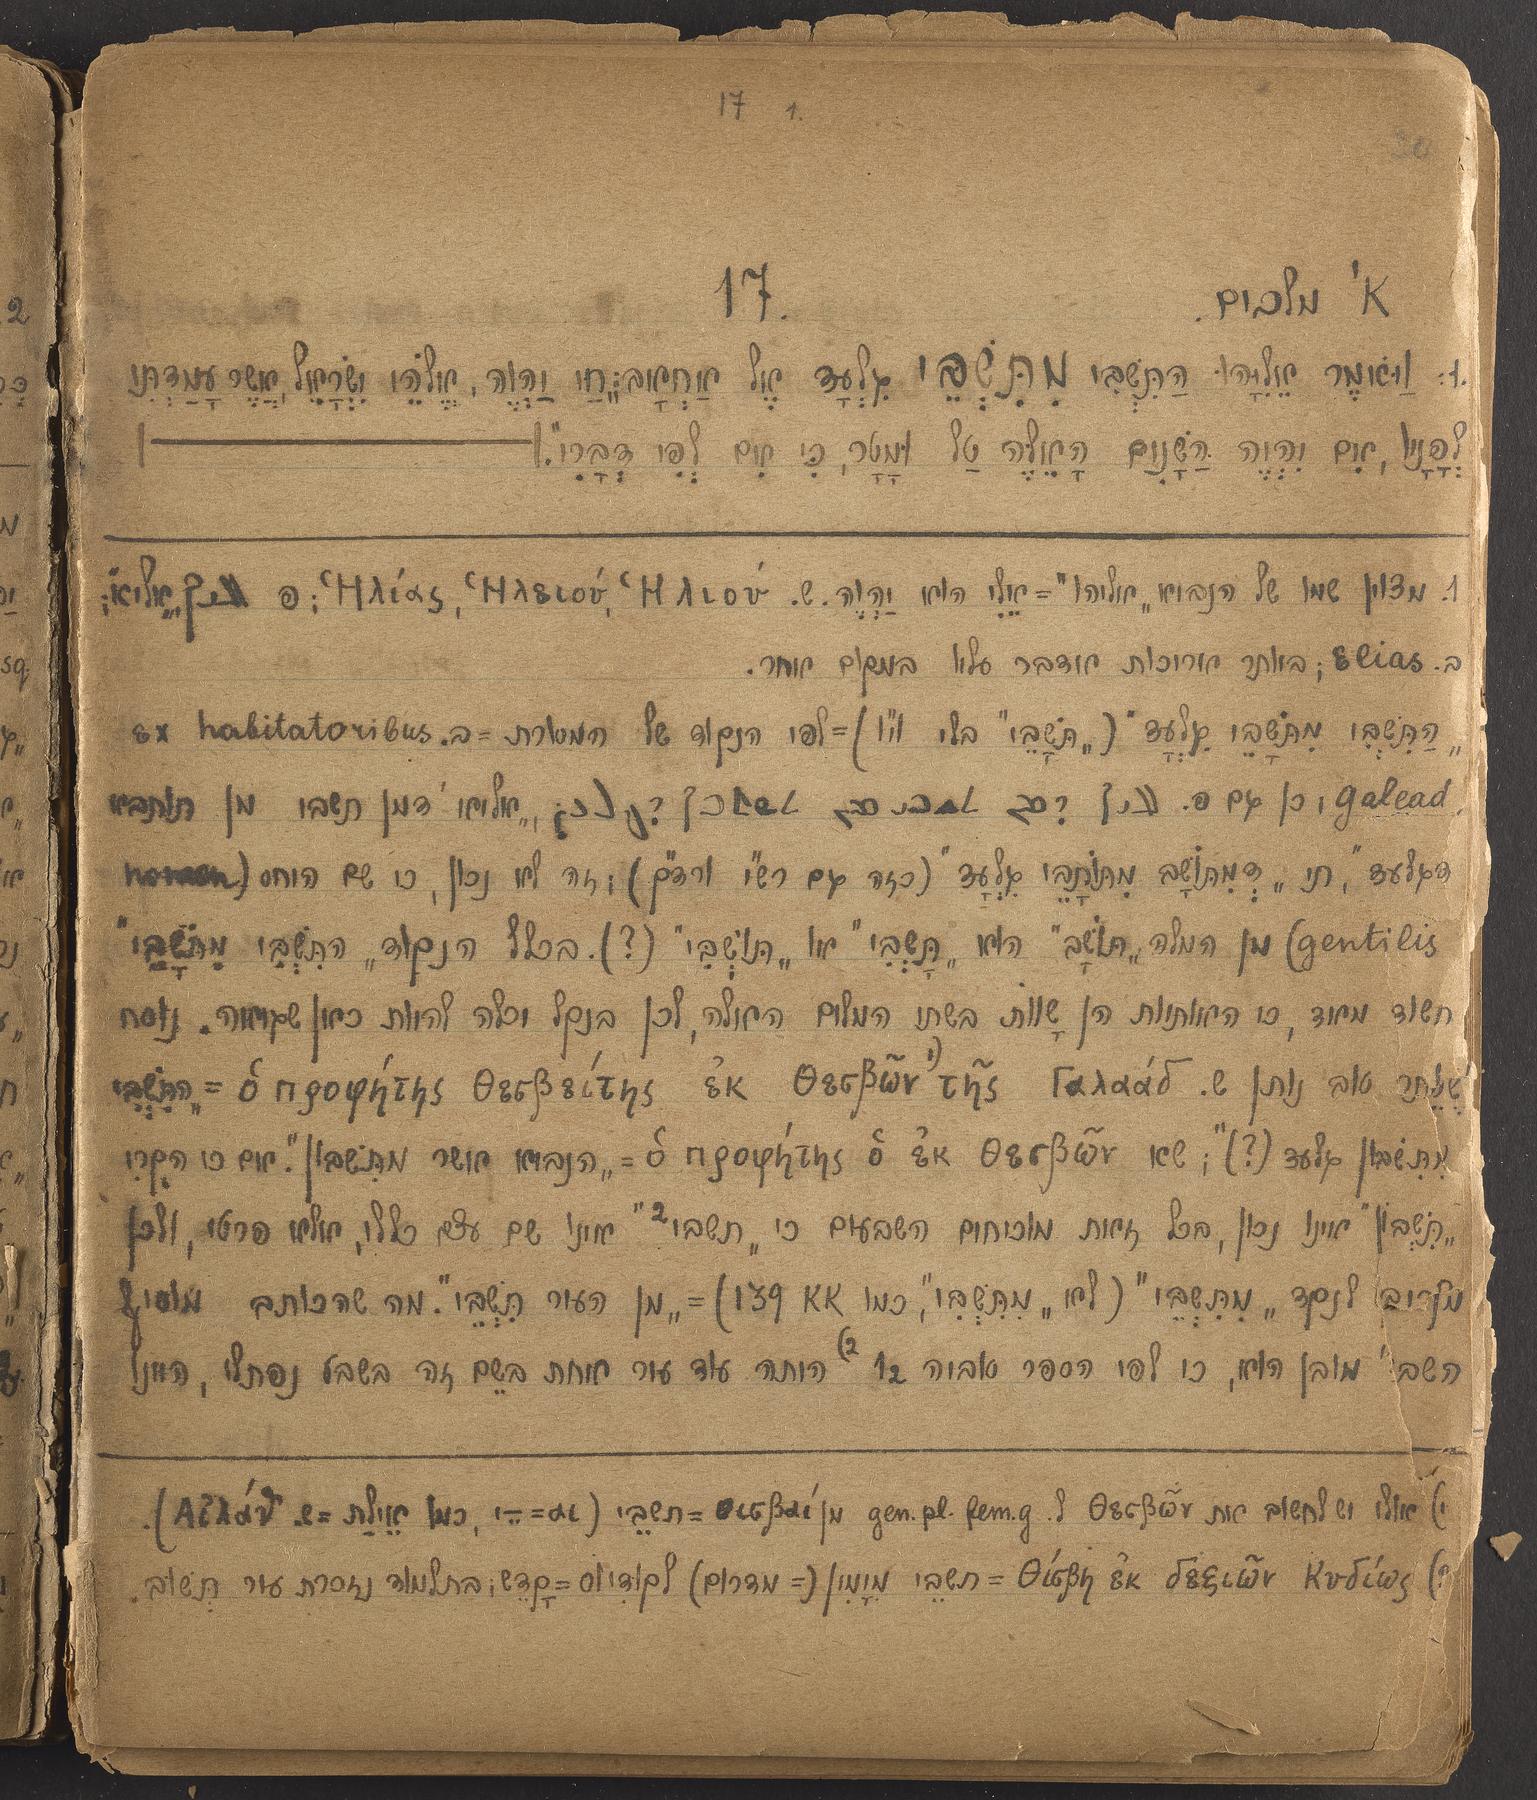 17 1.
א' מלכים. 17.
1. וַיֹּאמֶר אֵלִיָּהוּ הַתִּשְׁבִּי מִתִּשְׁבֵּי גִלְעָד אֶל אַחְאָב: חַי יַהְוֶה, אֱלֹהֵי יִשְׂרָאֵל, אֲשֶׁר עָמַדְתִּי
לְפָנָיו, אִם יִהְיֶה הַשָּׁנִים הָאֵלֶּה טַל וּמָטָר, כִּי אִם לְפִי דְבָרִי".|
1. מצוין שמו של הנביא „אליהו" = אֵלִי הוא יַהְוֶה. ש. Ἠλιού, Ἠλειού, Ἠλίας; פ „אליא";
ב. Elias; באתר ארוכות אדבר עליו במקום אחר.
„הַתִּשְׁבִּי מִתֹּשָׁבֵי גִלְעָד" („תֹּשָׁבֵי" בלי וי"ו) = לפי הנקוד של המסורת = ב. ex habitatoribus
galead, כן גם פ. „אליא דמן תשבי מן תותבא
דגלעד", תי „דְמִתּוֹשָׁב מִתּוֹתָבֵי גִלְעָד" (כזה גם רש"י ורד"ק); זה לא נכון, כי שם היחס (nomen
gentilis) מן המלה „תּוֹשָׁב" הוא „תָּשְׁבִי" או „תּוֹשְׁבִי" (?). בכלל הנקוד „הַתִּשְׁבִּי מִתֹּשָׁבֵי"
חשוד מאוד, כי האותיות הן שָׁווֹת בשתי המלים האלה, לכן בנקל יכלה להיות כאן שגיאה. נוסח
יותר טוב נותן ש. ὁ προφήτης Θεσβείτης ἐκ Θεσβῶν¹⁾ τῆς Γαλαάδ = „הַתִּשְׁבִּי
מִתִּשְׁבּוֹן גלעד (?)"; שא ὁ προφήτης ὁ ἐκ Θεσβῶν = „הנביא אשר מִתִּשְׁבּוֹן". אם כי הקרי
„תִּשְׁבּוֹן" אינו נכון, בכל זאת מוכיחים השבעים כי „תשבי²" אינו שם עצם כללי, אלא פרטי, ולכן
לנקד „מִתִּשְׁבֵּי" (לא „מִתִּשְׁבִּי", כמו KK 139) = „מן העיר תִּשְׁבֵּי". מה שהכותב מוסיף
השבי' מובן הוא, כי לפי הספר טוביה 12 ²⁾ היתה עוד עיר אחת בְּשֵׁם זה בשבט נפתלי, היינו
1) אולי יש לחשוב את Θεσβῶν ל. gen. pl. fem. g מן Θισβαί = תשבֵּי (αι = ֵי, כמו אֵילַת = ש. Αἰλάν).
2) Θίσβη ἐκ δεξιῶν Κυδίως = תשבֵּי מִיָמִין (= מדרום) לקוּדִיוֹס = קָדֵשׁ; בתלמוד נזכרת עיר תִּשׁוּב.